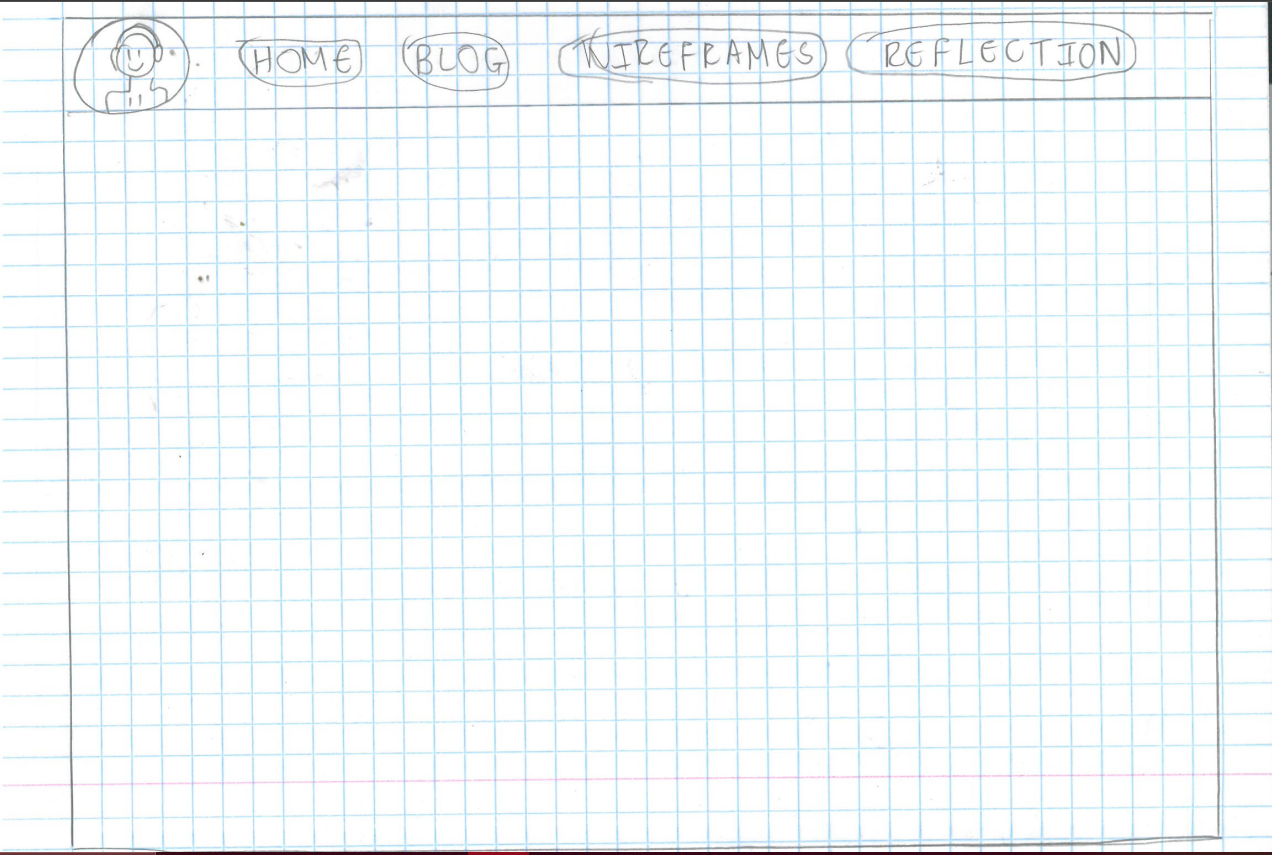 HOME BLOG WIREFRAMES REFLECTION